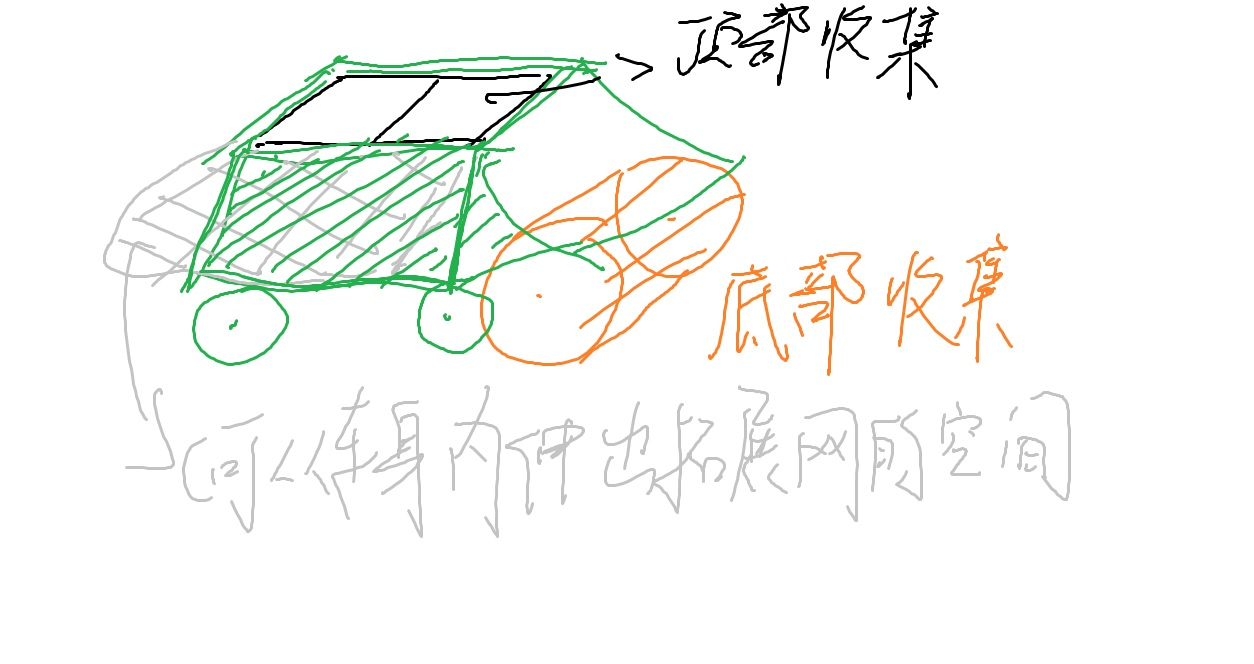 顶部收集
底部收集
可以车身内伸出拓展网的空间